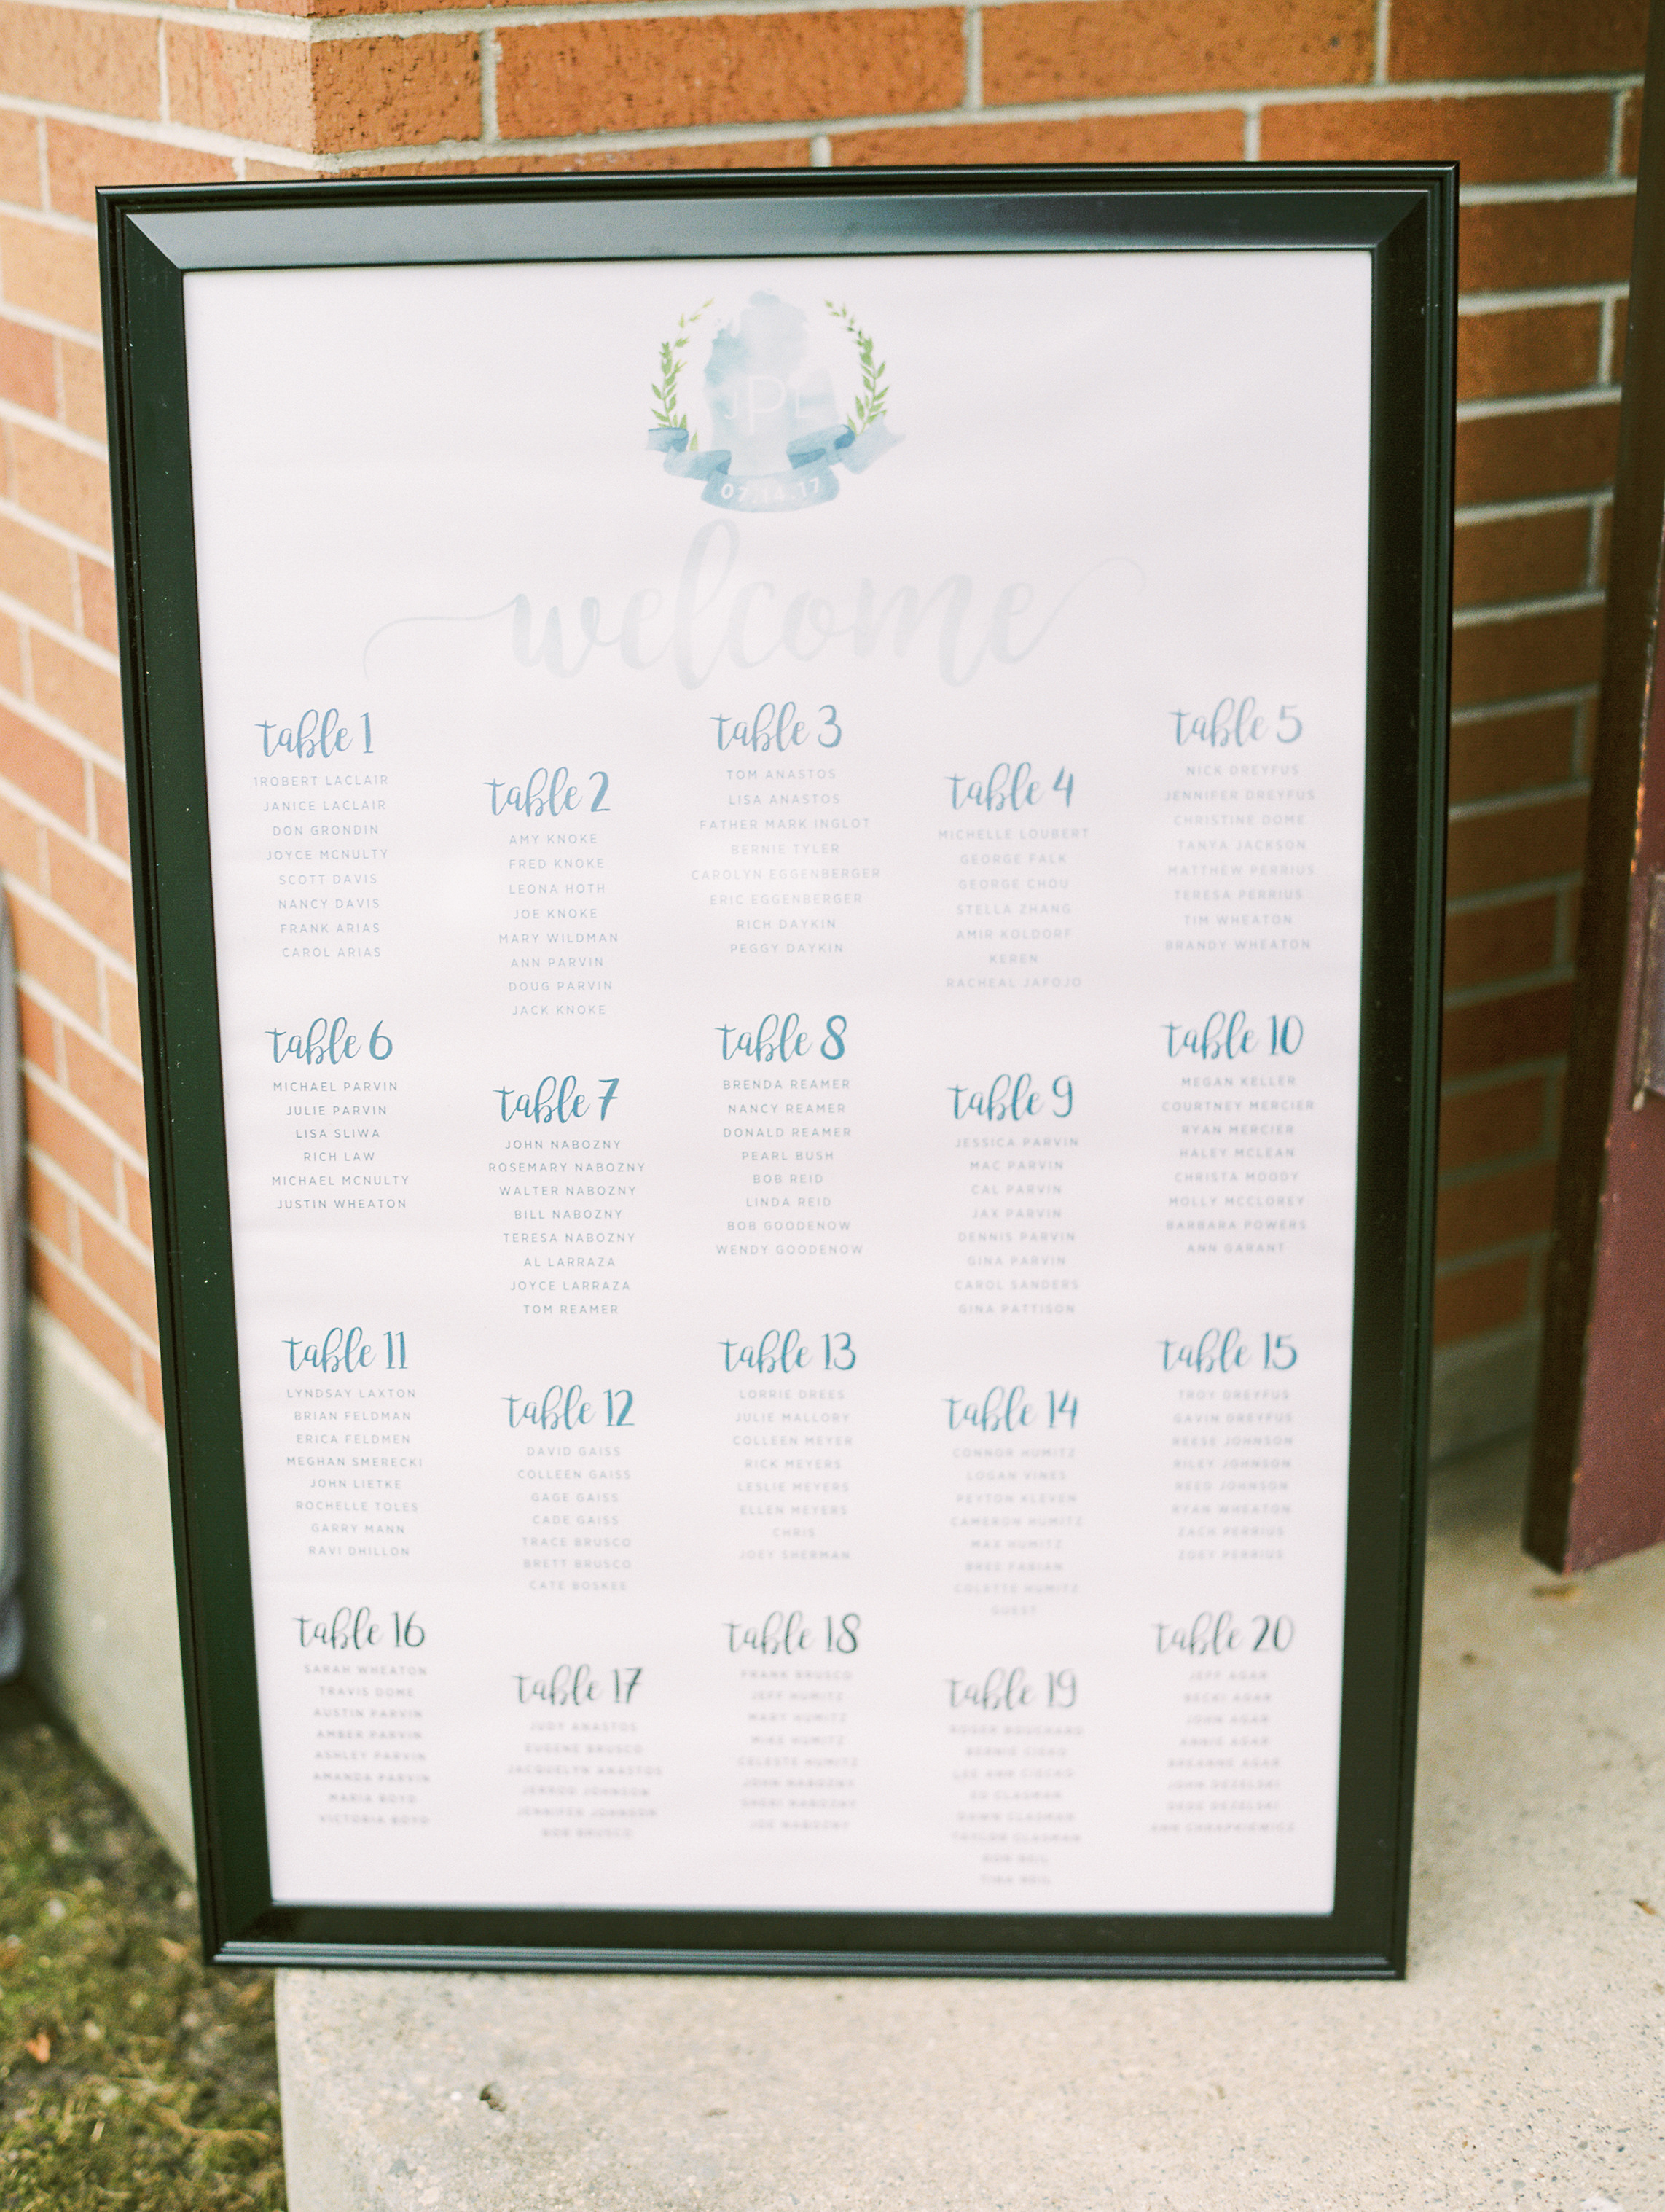 JPL
07.14.17
welcome
table 1
1ROBERT LACLAIR
JANICE LACLAIR
DON GRONDIN
JOYCE MCNULTY
SCOTT DAVIS
NANCY DAVIS
FRANK ARIAS
CAROL ARIAS
table 2
AMY KNOKE
FRED KNOKE
LEONA HOTH
JOE KNOKE
MARY WILDMAN
ANN PARVIN
DOUG PARVIN
JACK KNOKE
table 3
TOM ANASTOS
LISA ANASTOS
FATHER MARK INGLOT
BERNIE TYLER
CAROLYN EGGENBERGER
ERIC EGGENBERGER
RICH DAYKIN
PEGGY DAYKIN
table 4
MICHELLE LOUBERT
GEORGE FALK
GEORGE CHOU
STELLA ZHANG
AMIR KOLDORF
KEREN
RACHEAL JAFOJO
table 5
NICK DREYFUS
JENNIFER DREYFUS
CHRISTINE DOME
TANYA JACKSON
MATTHEW PERRIUS
TERESA PERRIUS
TIM WHEATON
BRANDY WHEATON
table 6
MICHAEL PARVIN
JULIE PARVIN
LISA SLIWA
RICH LAW
MICHAEL MCNULTY
JUSTIN WHEATON
table 7
JOHN NABOZNY
ROSEMARY NABOZNY
WALTER NABOZNY
BILL NABOZNY
TERESA NABOZNY
AL LARRAZA
JOYCE LARRAZA
TOM REAMER
table 8
BRENDA REAMER
NANCY REAMER
DONALD REAMER
PEARL BUSH
BOB REID
LINDA REID
BOB GOODENOW
WENDY GOODENOW
table 9
JESSICA PARVIN
MAC PARVIN
CAL PARVIN
JAX PARVIN
DENNIS PARVIN
GINA PARVIN
CAROL SANDERS
GINA PATTISON
table 10
MEGAN KELLER
COURTNEY MERCIER
RYAN MERCIER
HALEY MCLEAN
CHRISTA MOODY
MOLLY MCCLOREY
BARBARA POWERS
ANN GARANT
table 11
LYNDSAY LAXTON
BRIAN FELDMAN
ERICA FELDMEN
MEGHAN SMERECKI
JOHN LIETKE
ROCHELLE TOLES
GARRY MANN
RAVI DHILLON
table 12
DAVID GAISS
COLLEEN GAISS
GAGE GAISS
CADE GAISS
TRACE BRUSCO
BRETT BRUSCO
CATE BOSKEE
table 13
LORRIE DREES
JULIE MALLORY
COLLEEN MEYER
RICK MEYERS
LESLIE MEYERS
ELLEN MEYERS
CHRIS
JOEY SHERMAN
table 14
CONNOR HUMITZ
LOGAN VINES
PEYTON KLEVEN
CAMERON HUMITZ
MAX HUMITZ
BREE FABIAN
COLETTE HUMITZ
GUEST
table 15
TROY DREYFUS
GAVIN DREYFUS
REESE JOHNSON
RILEY JOHNSON
REED JOHNSON
RYAN WHEATON
ZACH PERRIUS
ZOEY PERRIUS
table 16
SARAH WHEATON
TRAVIS DOME
AUSTIN PARVIN
AMBER PARVIN
ASHLEY PARVIN
AMANDA PARVIN
MARIA BOYD
VICTORIA BOYD
table 17
JUDY ANASTOS
EUGENE BRUSCO
JACQUELYN ANASTOS
JERROD JOHNSON
JENNIFER JOHNSON
BOB BRUSCO
table 18
FRANK BRUSCO
JEFF HUMITZ
MARY HUMITZ
MIKE HUMITZ
CELESTE HUMITZ
JOHN NABOZNY
SHERI NABOZNY
JOE NABOZNY
table 19
ROGER BOUCHARD
BERNIE
LEE ANN
ED CLAGMAN
DAWN CLAGMAN
TAYLOR CLAGMAN
RON NEIL
TINA NEIL
table 20
JEFF AGAR
BECKI AGAR
JOHN AGAR
ANNIE AGAR
BREANNE AGAR
JOHN
ANN